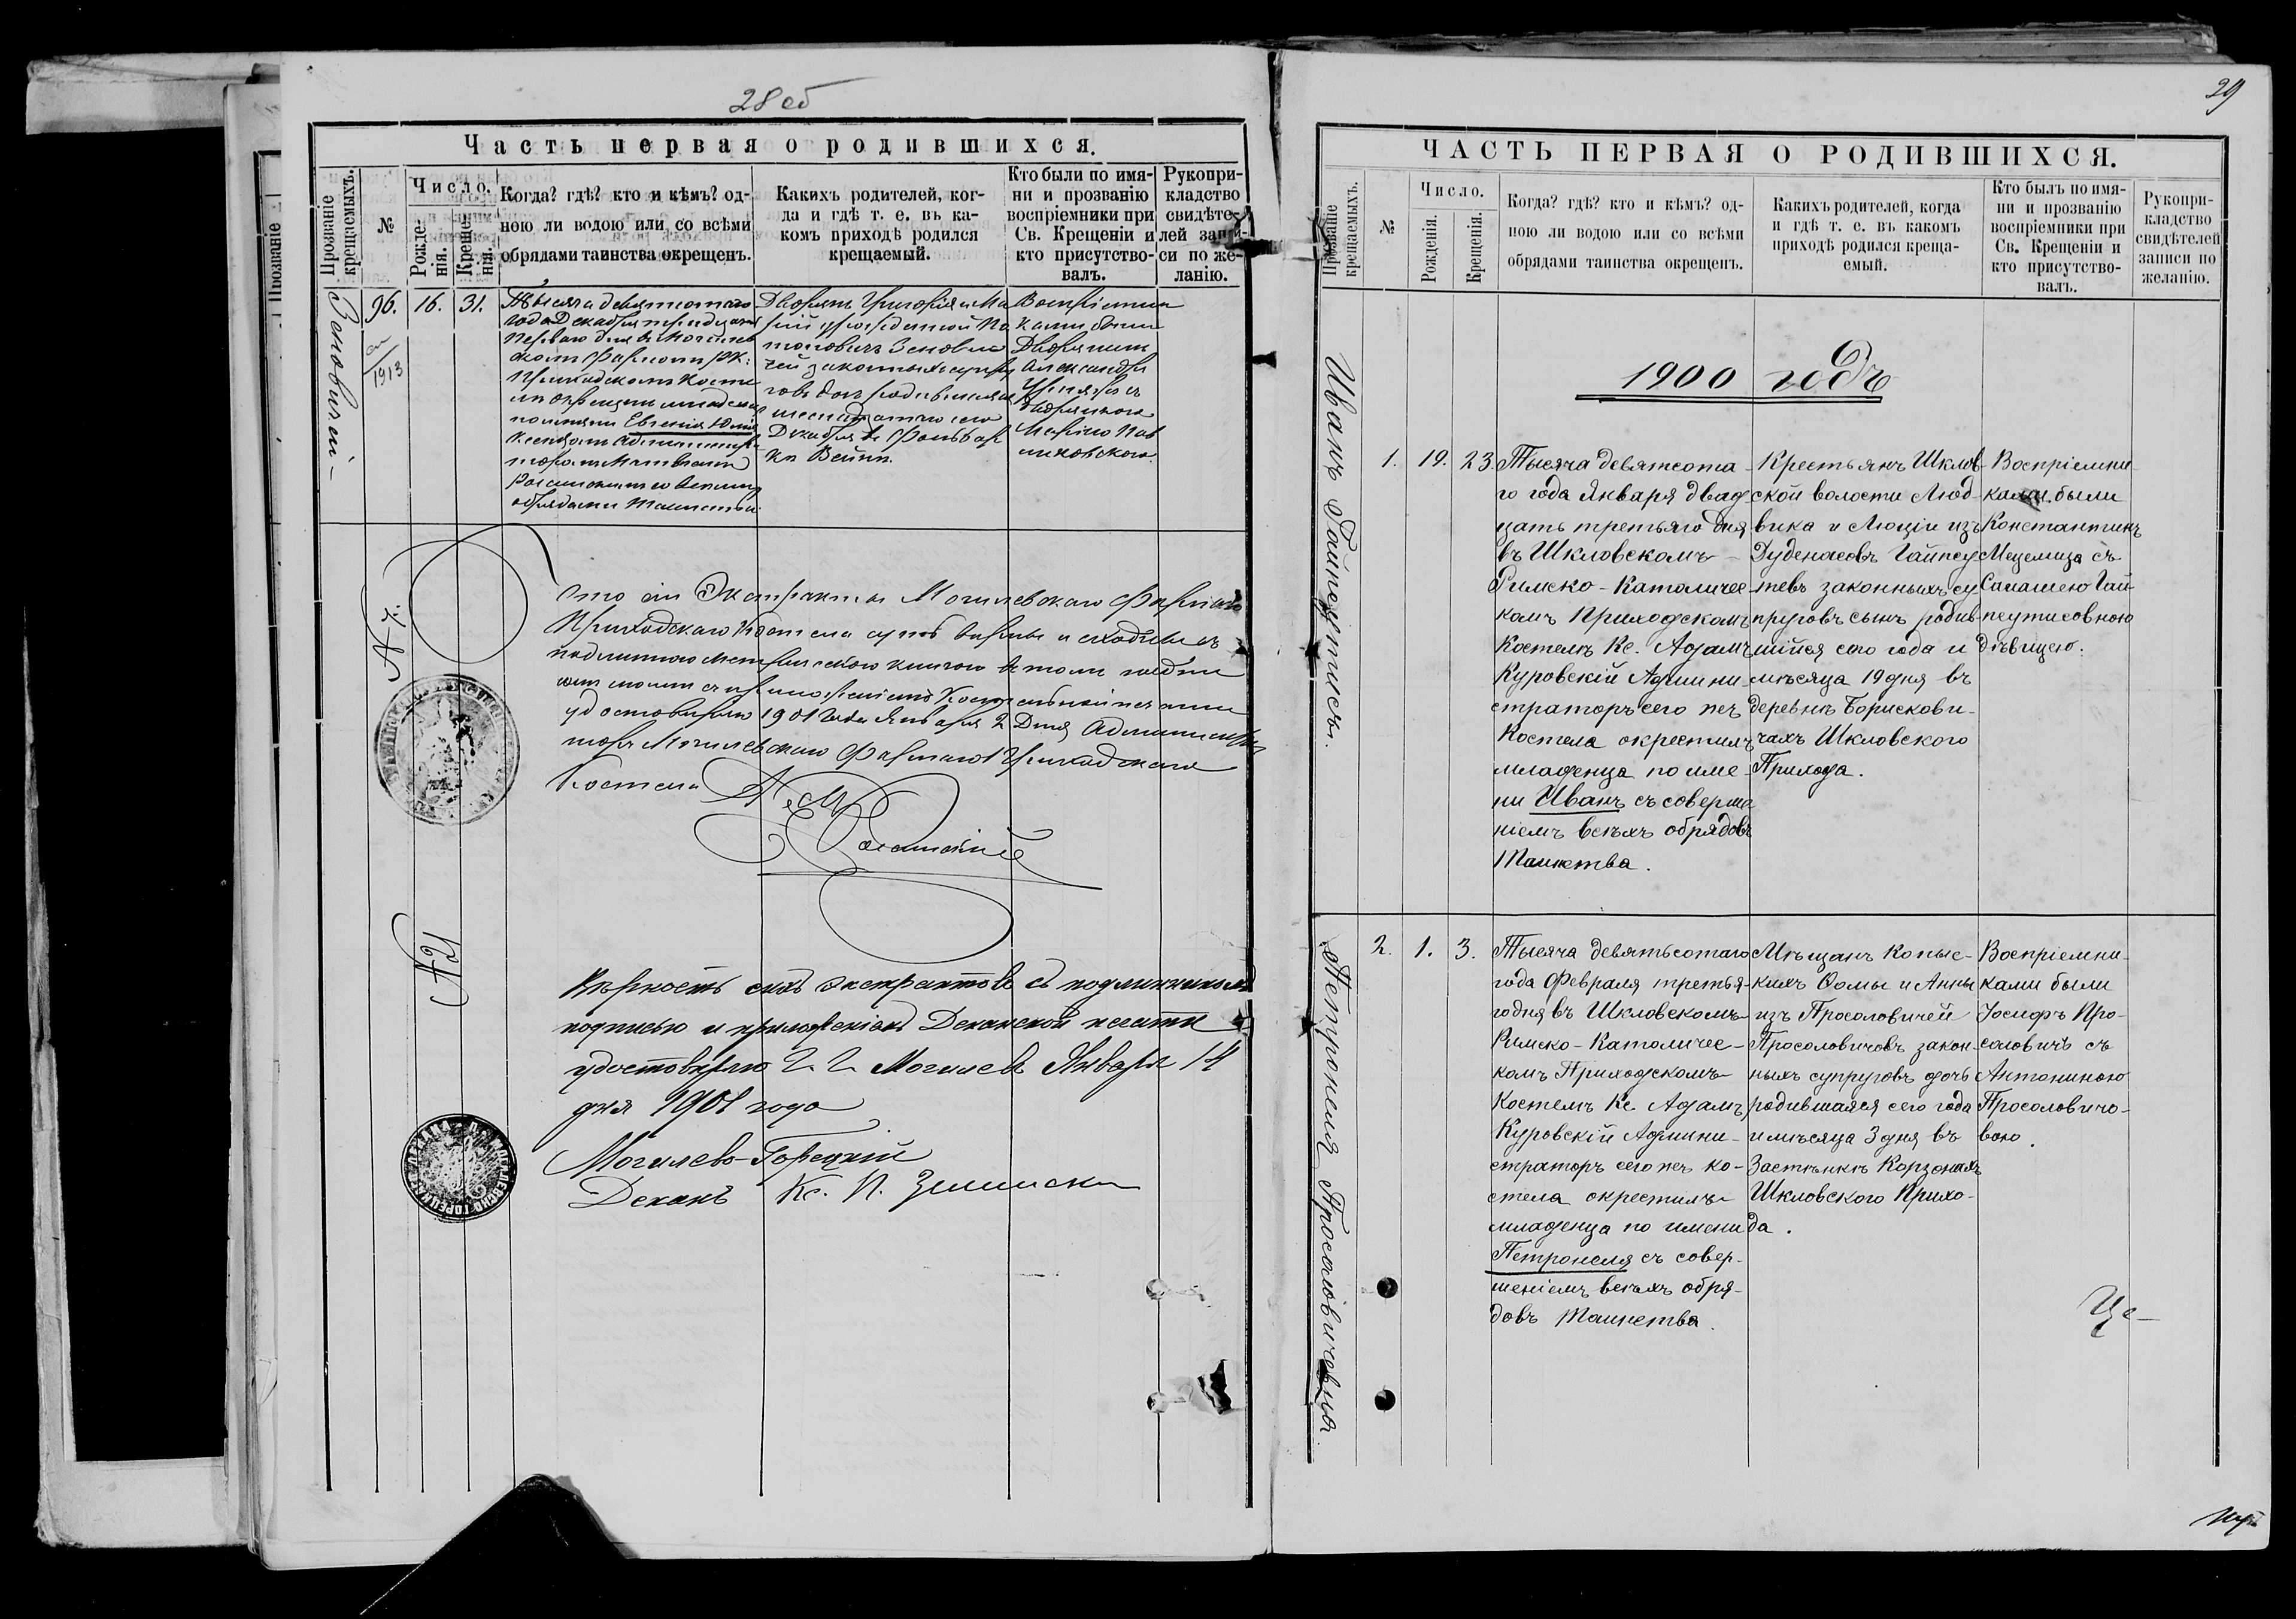 28 об
Часть первая о родившихся.
Прозваніе крещаемыхъ.
№
Число.
Рожденія.
Крещенія.
Когда? гдѣ? кто и кѣмъ? од-
ною ли водою или со всѣми
обрядами таинства окрещенъ.
Какихъ родителей, ког-
да и гдѣ т. е. въ ка-
комъ приходѣ родился
крещаемый.
Кто были по имя-
ни и прозванію
воспріемники при
Св. Крещеніи и
кто присутство-
валъ.
Рукопри-
кладство
свидѣте-
лей запи-
си по же-
ланію.
96.
1913
16.
31.
Тысяча девятисотаго
года Декабря тридцать
перваго дня въ Могилев
скомъ Фарномъ РК:
Приходскомъ Косте
лѣ окрещенъ младенецъ
по имени Евгенія Юлія
Ксендзомъ Администра
торомъ
со всѣми
обрядами Таинства.
Дворянъ Григорія и Ма
ріи урожденной По
Зенови
чей законныхъ супру
говъ дочь родившаяся
шестнадцатаго сего
Декабря въ Фольвар
кѣ
Воспріемни
ками были
Дворянинъ
Александръ
съ
дворянкою
Маріею Пав
ликовскою.
Что сіи Экстракты Могилевскаго Фарнаго
Приходскаго Костела суть вѣрны и сходны съ
подлинною метрическою книгою въ томъ подпи
сомъ моимъ съ приложеніемъ Костельной печати
удостовѣряю 1901 года Января 2 Дня Администра
торъ Могилевскаго Фарнаго Приходскаго
Костела
№ 7.
№ 21
Вѣрность сихъ экстрактовъ съ подлинникомъ
подписью и приложеніемъ Деканской печати
удостовѣряю Г. Г. Могилевъ Января 14
дня 1901 года
Могилево-Горецкій
Деканъ Кс. П. Зелинскі
29
ЧАСТЬ ПЕРВАЯ О РОДИВШИХСЯ.
Прозваніе крещаемыхъ.
№
Число.
Рожденія.
Крещенія.
Когда? гдѣ? кто и кѣмъ? од-
ною ли водою или со всѣми
обрядами таинства окрещенъ.
Какихъ родителей, когда
и гдѣ т. е. въ какомъ
приходѣ родился креща-
емый.
Кто былъ по имя-
ни и прозванію
воспріемники при
Св. Крещеніи и
кто присутство-
валъ.
Рукопри-
кладство
свидѣтелей
записи по
желанію.
1900 годъ
Иванъ Гайпеутисъ.
1.
19.
23.
Тысяча девятсота-
го года Января двад-
цать третьяго дня
въ Шкловскомъ
Римско-Католичес-
комъ Приходскомъ
Костелѣ Кс. Адамъ
Куровскій Админи-
страторъ сего же
Костела окрестилъ
младенца по име-
ни Иванъ съ соверше
ніемъ всѣхъ обрядовъ
Таинства.
Крестьянъ Шклов-
ской волости Люд-
вика и Люціи изъ
Дуденасовъ Гайпеу-
тевъ законныхъ су
пруговъ сынъ родив-
шійся сего года и
мѣсяца 19 дня въ
деревнѣ Борискови-
чахъ Шкловского
Прихода.
Воспріемни-
ками были
Константинъ
Мецелица съ
Гай-
пеутисовною
дѣвицею.
Петронеля Просоловичевна.
2.
1.
3.
Тысяча девятьсотаго
года Февраля третья-
го дня въ Шкловскомъ
Римско-Католичес-
комъ Приходскомъ
Костелѣ Кс. Адамъ
Куровскій Админи-
страторъ сего же ко-
стела окрестилъ
младенца по имени
Петронеля съ совер-
шеніемъ всѣхъ обря-
довъ Таинства.
Мѣщанъ Копыс-
кихъ Ѳомы и Анны
изъ Просоловичей
Просоловичовъ закон-
ныхъ супруговъ дочь
родившаяся сего года
и мѣсяца 3 дня въ
Застѣнкѣ Корзонахъ
Шкловского Прихо-
да.
Воспріемни-
ками были
Іосифъ Про-
соловичъ съ
Антониною
Просоловичо-
вою.